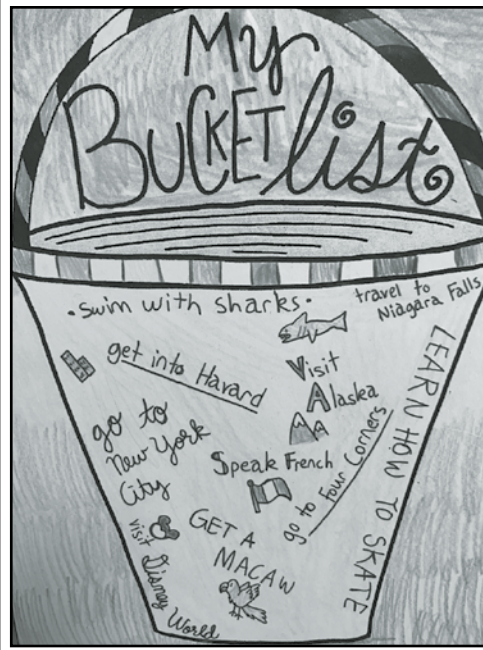 My
BUCKET list
•swim with sharks•
travel to
Niagara Falls
get into Havard
Visit
Alaska
LEARN HOW TO SKATE
go to
New York
City
Speak French
go to Four Corners
GET A
MACAW
visit
Disney
World